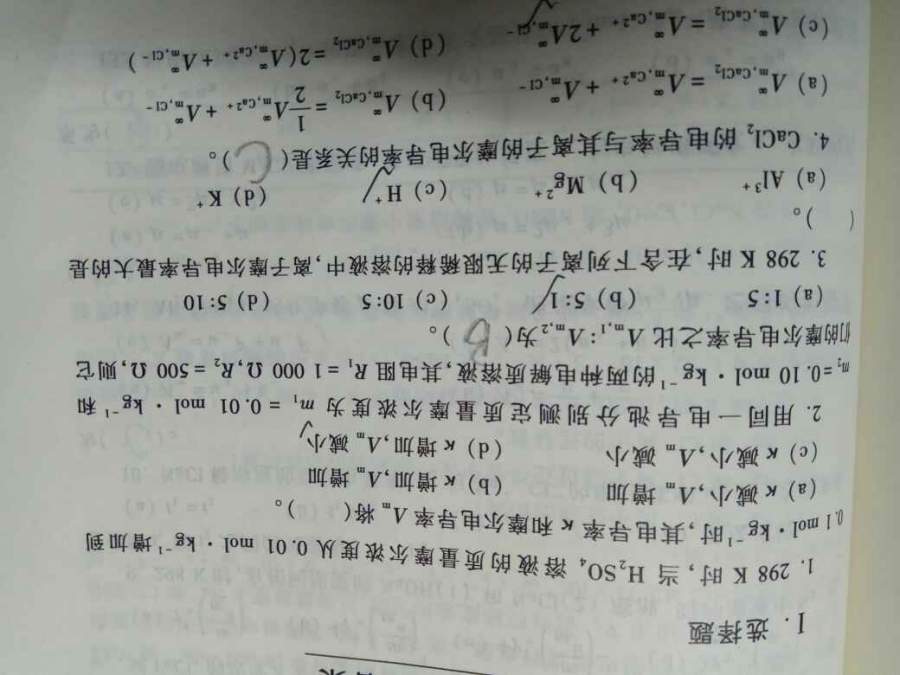 I. 选择题
1. 298 K 时，当 H₂SO₄ 溶液的质量摩尔浓度从 0.01 mol·kg⁻¹ 增加到
0.1 mol·kg⁻¹时，其电导率 κ 和摩尔电导率 Λₘ 将(　　)。
(a) κ 减小，Λₘ 增加　(b) κ 增加，Λₘ 增加
(c) κ 减小，Λₘ 减小　(d) κ 增加，Λₘ 减小
2. 用同一电导池分别测定质量摩尔浓度为 m₁ = 0.01 mol·kg⁻¹ 和
m₂=0.10 mol·kg⁻¹ 的两种电解质溶液，其电阻 R₁ = 1 000 Ω，R₂ = 500 Ω，则它
们的摩尔电导率之比 Λₘ,₁:Λₘ,₂为( b )。
(a) 1:5　(b) 5:1　(c) 10:5　(d) 5:10
3. 298 K 时，在含下列离子的无限稀释的溶液中，离子摩尔电导率最大的是
(　　)。
(a) Al³⁺　(b) Mg²⁺　(c) H⁺　(d) K⁺
4. CaCl₂ 的电导率与其离子的摩尔电导率的关系是( C )。
(a) Λ∞m,CaCl₂ = Λ∞m,Ca²⁺ + Λ∞m,Cl⁻　(b) Λ∞m,CaCl₂ = 1/2 Λ∞m,Ca²⁺ + Λ∞m,Cl⁻
(c) Λ∞m,CaCl₂ = Λ∞m,Ca²⁺ + 2Λ∞m,Cl⁻　(d) Λ∞m,CaCl₂ = 2(Λ∞m,Ca²⁺ + Λ∞m,Cl⁻)